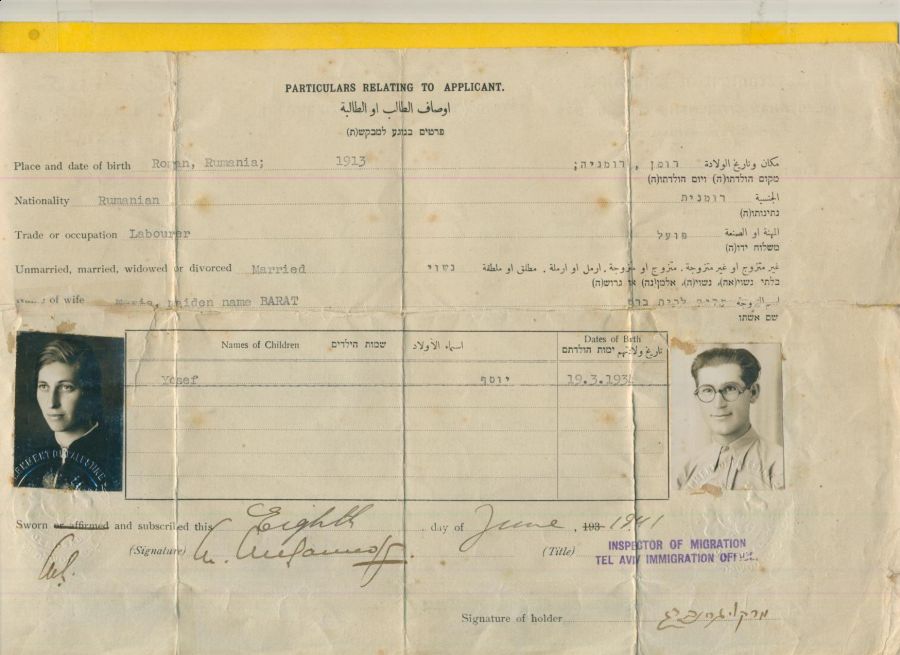 PARTICULARS RELATING TO APPLICANT.
اوصاف الطالب او الطالبة
פרטים בנוגע למבקש(ת)
Place and date of birth Roman, Rumania; 1913 רומן, רומניה; مكان وتاريخ الولادة
מקום הולדתו(ה) ויום הולדתו(ה)
Nationality Rumanian רומנית الجنسية
נתינותו(ה)
Trade or occupation Labourer פועל المهنة او الصنعة
משלוח ידו(ה)
Unmarried, married, widowed or divorced Married נשוי غير متزوج او غير متزوجة. متزوج او متزوجة. ارمل او ارملة. مطلق او مطلقة
בלתי נשוי(אה), נשוי(ה), אלמן(נה) או גרוש(ה)
of wife maiden name BARAT לבית ברט اسم الزوجة
שם אשתו
Names of Children שמות הילדים اسماء الأولاد Dates of Birth
ימות הולדתם تاريخ ولادتهم
Yosef יוסף 19.3.193
GOVERNMENT OF PALESTINE
Sworn or affirmed and subscribed this Eighth day of June, 193 1941
(Signature) (Title) INSPECTOR OF MIGRATION
TEL AVIV IMMIGRATION OFFICE.
Signature of holder